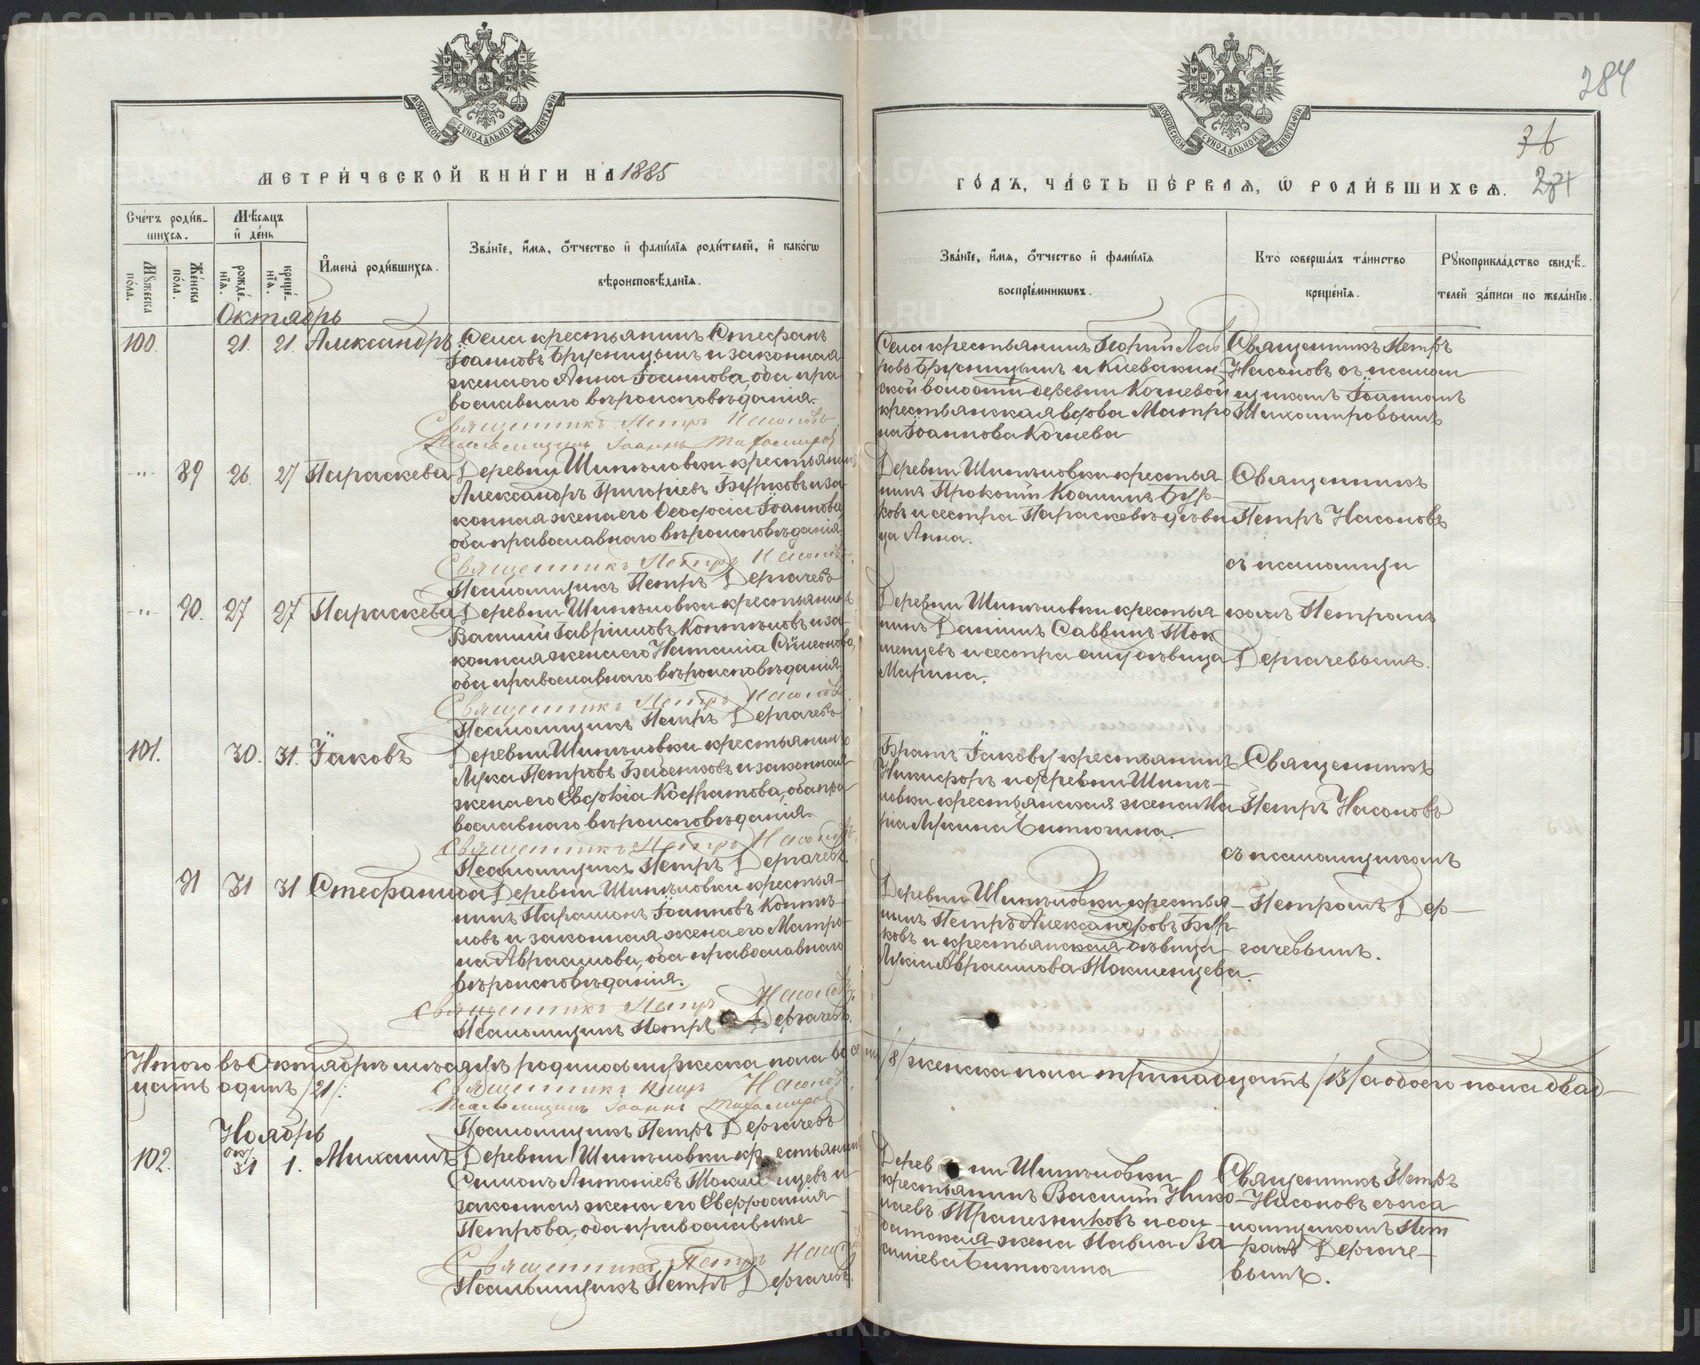 284
36
284
МЕТРИ́ЧЕСКОЙ КНИ́ГИ НА 1885
ГО́ДЪ, ЧА́СТЬ ПЕ́РВАЯ, Ѡ РОДИ́ВШИХСЯ.
Сче́тъ роди́в-
шихся.
Мѣ́сяцъ
и де́нь
Му́жеска по́ла.
Же́нска по́ла.
рожде́-
нїя.
креще́-
нїя.
И́мена роди́вшихся.
Зва́нїе, и́мя, о́тчество и фами́лїя роди́телей, и како́гѡ
вѣроисповѣ́данїя.
Зва́нїе, и́мя, о́тчество и фами́лїя
воспрїе́мниковъ.
Кто̀ соверша́лъ та́инство
креще́нїя.
Рукоприкла́дство свидѣ́-
телей за́писи по жела́нїю.
Октябрь
100. 21. 21. Александръ
Села крестьянинъ Стефанъ
Іоанновъ Брусницынъ и законная
жена его Анна Іоаннова, оба пра
вославнаго вѣроисповѣданія.
Священникъ Петръ Насоновъ
Псаломщикъ Іоаннъ Тихомировъ
Села крестьянинъ Георгій Лав
ровъ Брусницынъ и Киевакин
ской волости деревни Кочневой
крестьянская вдова Матро
на Іоаннова Кочнева
Священникъ Петръ
Насоновъ съ псалом
щикомъ Іоанномъ
Тихомировымъ
89 26. 27 Параскева
Деревни Шипѣловки крестьянинъ
Александръ Григоріевъ Бурковъ и за
конная жена его Ѳеодосія Іоаннова
оба православнаго вѣроисповѣданія
Священникъ Петръ Насоновъ
Псаломщикъ Петръ Дергачевъ
Деревни Шипѣловки крестья
нинъ Прокопій Косминъ Бур-
ковъ и сестра Параскевѣ дѣви
ца Анна.
Священникъ
Петръ Насоновъ
съ псаломщи
90. 27 27 Параскева
Деревни Шипѣловки крестьянинъ
Василій Гавріиловъ Коптѣловъ и за
конная жена его Наталія Сѷмеонова,
оба православнаго вѣроисповѣданія
Священникъ Петръ Насоновъ
Псаломщикъ Петръ Дергачевъ
Деревни Шипѣловки крестья
нинъ Даніилъ Саввинъ Ток
менцевъ и сестра ему дѣвица
Марина.
комъ Петромъ
Дергачевымъ.
101. 30. 31. Іаковъ
Деревни Шипѣловки крестьянинъ
Лука Петровъ Бабенковъ и законная
жена его Евдокія Кодратова, оба пра
вославнаго вѣроисповѣданія.
Священникъ Петръ Насоновъ
Псаломщикъ Петръ Дергачевъ
Братъ Іакову крестьянинъ
Никифоръ и деревни Шипѣ-
ловки крестьянская жена Ма
рѳа Лукина Битюгина.
Священникъ
Петръ Насоновъ
съ псаломщикомъ
91 31 31 Стефанида
Деревни Шипѣловки крестья-
нинъ Парамонъ Іоанновъ Коптѣ-
ловъ и законная жена его Матро
на Авраамова, оба православнаго
вѣроисповѣданія.
Священникъ Петръ Насоновъ
Псаломщикъ Петръ Дергачевъ
Деревни Шипѣловки крестья-
нинъ Петръ Александровъ Бур
ковъ и крестьянская дѣвица
Лукія Авраамова Токменцева.
Петромъ Дер-
гачевымъ.
Итого въ Октябрѣ мѣсяцѣ родилось мужеска пола восемь /8/ женска пола тринадцать /13/ а обоего пола двад-
цать одинъ /21/:
Священникъ Петръ Насоновъ
Псаломщикъ Іоаннъ Тихомировъ
Псаломщикъ Петръ Дергачевъ
Ноябрь
102. окт. 31 1. Михаилъ
Деревни Шипѣловки крестьянинъ
Симонъ Антоніевъ Токменцевъ и
законная жена его Евфросинія
Петрова, оба православные
Священникъ Петръ Насоновъ
Псаломщикъ Петръ Дергачевъ.
Деревни Шипѣловки
крестьянинъ Василій Нико
лаевъ Трапезниковъ и сол
датская жена Павла Ва
силіева Битюгина
Священникъ Петръ
Насоновъ съ пса
ломщикомъ Пет
ромъ Дергаче-
вымъ.
METRIKI.GASO-URAL.RU